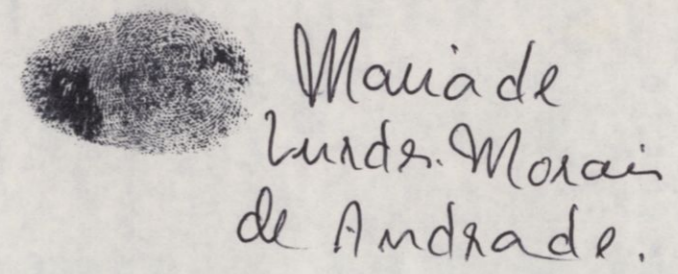 Maria de
Lurdes. Morais
de Andrade.